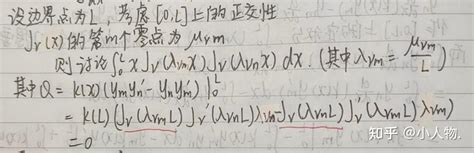 设边界点为L,考虑[0,L]上的正交性
Jᵥ(x)的第m个零点为 μᵥₘ
则讨论∫₀ᴸ x Jᵥ(λᵥₘx) Jᵥ(λᵥₙx) dx. (其中 λᵥₘ = μᵥₘ/L)
其中Q = k(x)(yₘyₙ' - yₙyₘ')|₀ᴸ
= k(L)(Jᵥ(λᵥₘL) Jᵥ'(λᵥₙL)λᵥₙ - Jᵥ(λᵥₙL) Jᵥ'(λᵥₘL) λᵥₘ)
= 0
知乎 @小人物.